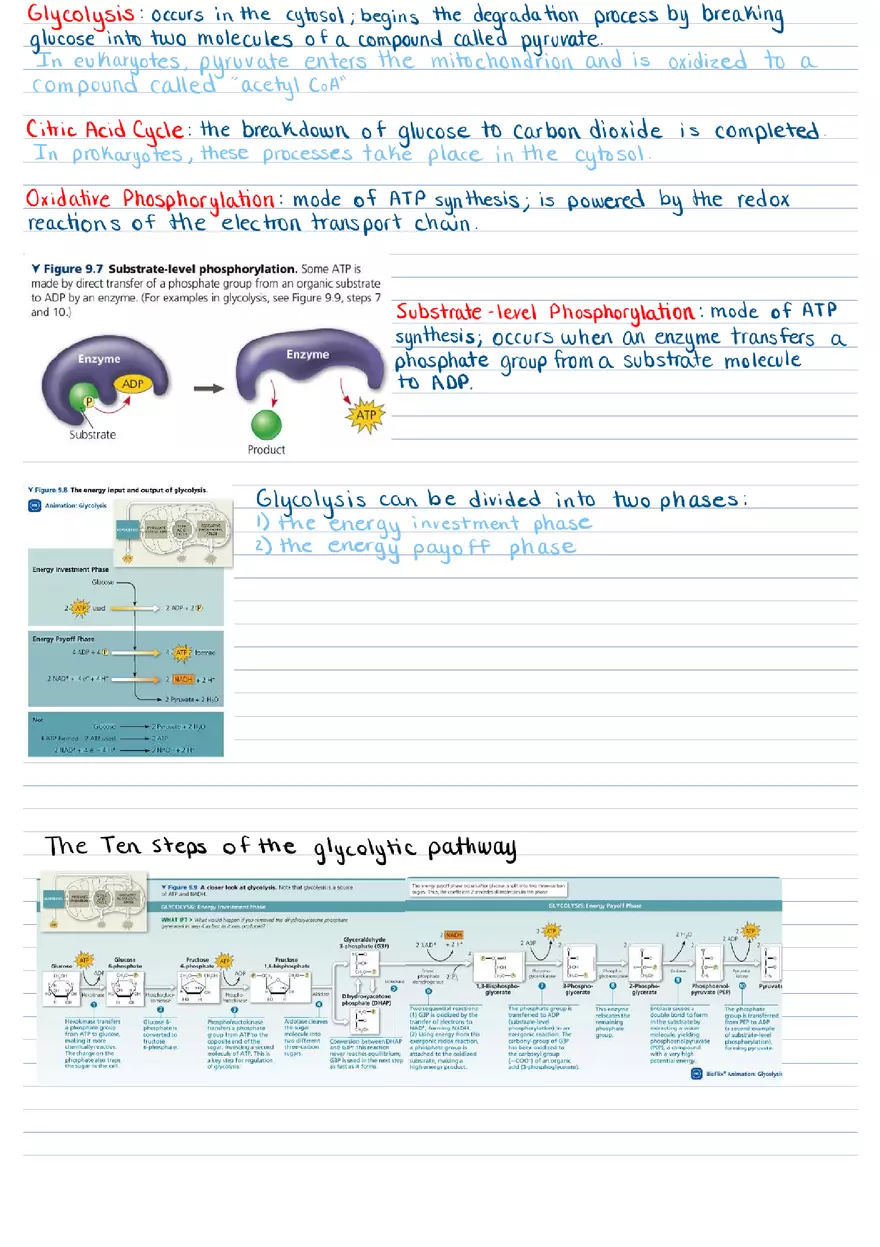 Glycolysis: occurs in the cytosol; begins the degradation process by breaking
glucose into two molecules of a compound called pyruvate.
In eukaryotes, pyruvate enters the mitochondrion and is oxidized to a
compound called "acetyl CoA"
Citric Acid Cycle: the breakdown of glucose to carbon dioxide is completed.
In prokaryotes, these processes take place in the cytosol.
Oxidative Phosphorylation: mode of ATP synthesis; is powered by the redox
reactions of the electron transport chain.
Figure 9.7 Substrate-level phosphorylation. Some ATP is
made by direct transfer of a phosphate group from an organic substrate
to ADP by an enzyme. (For examples in glycolysis, see Figure 9.9, steps 7
and 10.)
Enzyme
ADP
P
Substrate
Enzyme
ATP
Product
Substrate-level Phosphorylation: mode of ATP
synthesis; occurs when an enzyme transfers a
phosphate group from a substrate molecule
to ADP.
Figure 9.8 The energy input and output of glycolysis.
Animation: Glycolysis
Energy Investment Phase
Glucose
2 ATP used
2 ADP + 2 P
Energy Payoff Phase
4 ADP + 4 P
4 ATP formed
2 NAD+ + 4 e- + 4 H+
2 NADH + 2 H+
2 Pyruvate + 2 H2O
Net
Glucose
2 Pyruvate + 2 H2O
4 ATP formed – 2 ATP used
2 ATP
2 NAD+ + 4 e- + 4 H+
2 NADH + 2 H+
Glycolysis can be divided into two phases:
1) the energy investment phase
2) the energy payoff phase
The Ten steps of the glycolytic pathway
Figure 9.9 A closer look at glycolysis. Note that glycolysis is a source
of ATP and NADH.
GLYCOLYSIS: Energy Investment Phase
WHAT IF? What would happen if you removed the dihydroxyacetone phosphate
generated in step 4 as fast as it was produced?
The energy payoff phase occurs after glucose is split into two three-carbon
sugars. Thus, the coefficient 2 precedes all molecules in this phase.
GLYCOLYSIS: Energy Payoff Phase
Glucose
ATP
ADP
Hexokinase
Glucose
6-phosphate
Fructose
6-phosphate
ATP
ADP
Fructose
1,6-bisphosphate
Aldolase
Glyceraldehyde
3-phosphate (G3P)
Dihydroxyacetone
phosphate (DHAP)
2 NADH
2 NAD+
+ 2 H+
1,3-Bisphospho-
glycerate
2 ADP
2 ATP
3-Phospho-
glycerate
2-Phospho-
glycerate
2 H2O
Phosphoenol-
pyruvate (PEP)
2 ADP
2 ATP
Pyruvate
Hexokinase transfers
a phosphate group
from ATP to glucose,
making it more
chemically reactive.
The charge on the
phosphate also traps
the sugar in the cell.
Glucose 6-
phosphate is
converted to
fructose
6-phosphate.
Phosphofructokinase
transfers a phosphate
group from ATP to the
opposite end of the
sugar, investing a second
molecule of ATP. This is
a key step for regulation
of glycolysis.
Aldolase cleaves
the sugar
molecule into
two different
three-carbon
sugars.
Conversion between DHAP
and G3P: This reaction
never reaches equilibrium;
G3P is used in the next step
as fast as it forms.
Two sequential reactions:
(1) G3P is oxidized by the
transfer of electrons to
NAD+, forming NADH.
(2) Using energy from this
exergonic redox reaction,
a phosphate group is
attached to the oxidized
substrate, making a
high-energy product.
The phosphate group is
transferred to ADP
(substrate-level
phosphorylation) in an
exergonic reaction. The
carbonyl group of G3P
has been oxidized to
the carboxyl group
(—COO-) of an organic
acid (3-phosphoglycerate).
This enzyme
relocates the
remaining
phosphate
group.
Enolase causes a
double bond to form
in the substrate by
extracting a water
molecule, yielding
phosphoenolpyruvate
(PEP), a compound
with a very high
potential energy.
The phosphate
group is transferred
from PEP to ADP
(a second example
of substrate-level
phosphorylation),
forming pyruvate.
BioFlix® Animation: Glycolysis